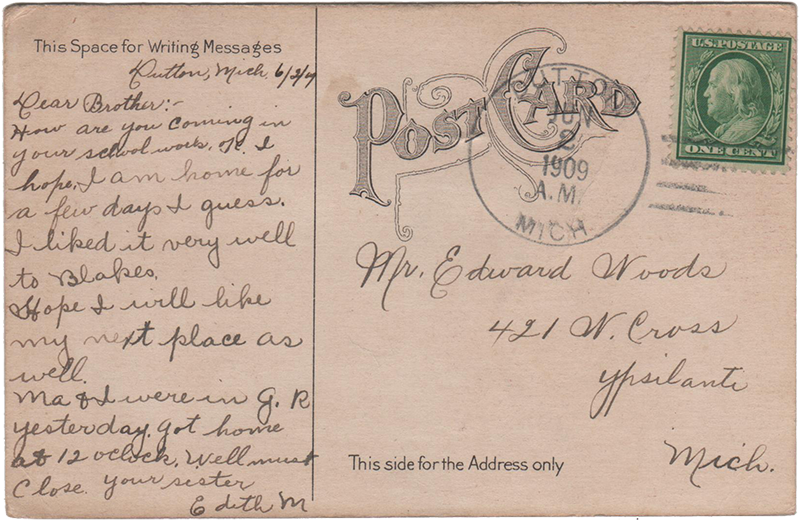 This Space for Writing Messages
Dutton, Mich. 6/2/9
Dear Brother:-
How are you coming in
your school work. O.K. I
hope. I am home for
a few days I guess.
I liked it very well
to Blakes.
Hope I will like
my next place as
well.
Ma & I were in G. R
yesterday. Got home
at 12 oclock. Well must
close. your sister
Edith M
POST CARD
DUTTON
JUN
2
1909
A.M.
MICH.
U.S. POSTAGE
ONE CENT
Mr. Edward Woods
421 N. Cross
Ypsilanti
Mich.
This side for the Address only